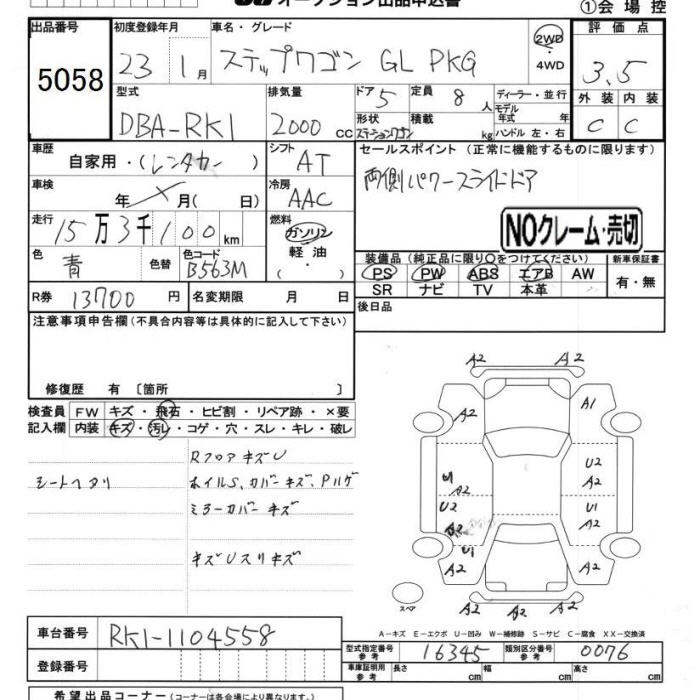 オークション出品申込書
①会場控
出品番号 5058
初度登録年月 23 1月
車名・グレード ステップワゴン GL PKG
2WD
4WD
評価点 3.5
外装 C 内装 C
型式 DBA-RK1
排気量 2000 cc
ドア 5
定員 8 人
ディーラー・並行
モデル年式 年
形状 ステーションワゴン
積載 kg
ハンドル 左・右
車歴 自家用・(レンタカー)
シフト AT
セールスポイント(正常に機能するものに限ります)
両側パワースライドドア
車検 年 月( 日)
冷房 AAC
走行 15万3千100km
燃料 ガソリン
軽油
・( )
NOクレーム・売切
色 青 色替
色コード B563M
装備品(純正品に限り○をつけてください)
PS PW ABS エアB AW
SR ナビ TV 本革
新車保証書
有・無
R券 13700円
名変期限 月 日
後日品
注意事項申告欄(不具合内容等は具体的に記入して下さい)
修復歴 有〔箇所 〕
検査員記入欄
FW キズ・飛石・ヒビ割・リペア跡・×要
内装 キズ・汚レ・コゲ・穴・スレ・キレ・破レ
RフロアキズU
シートヘタリ
ホイルS、カバーキズ、Pハゲ
ミラーカバーキズ
キズUスリキズ
A2 A2
A2 A1
U1 A2
U2 A2
U2 A2
U1 A2
U1 A2
A2
A2 A2
スペア
A-キズ E-エクボ U-凹み W-補修跡 S-サビ C-腐食 XX-交換済
車台番号 RK1-1104558
登録番号
型式指定番号 参考 16345
類別区分番号 参考 0076
車庫証明用 参考 長さ 幅 高さ
希望出品コーナー(コーナーは各会場により異なります)